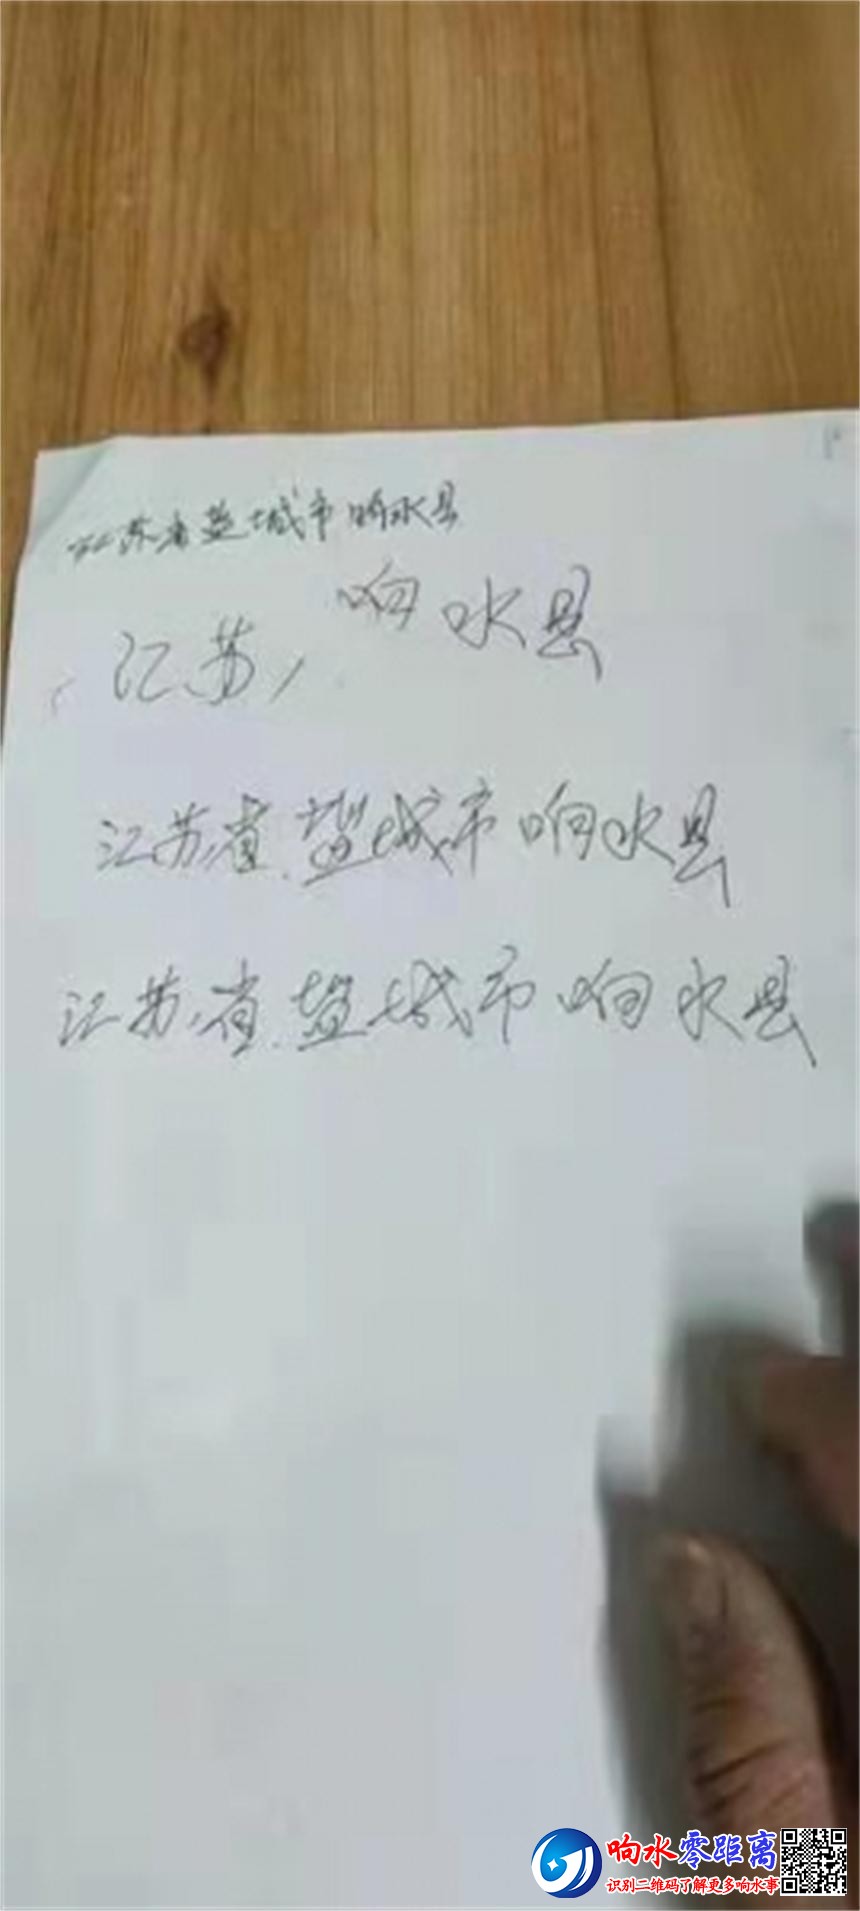 江苏省盐城市响水县
江苏, 响水县
江苏省盐城市响水县
江苏省盐城市响水县
响水零距离
识别二维码了解更多响水事